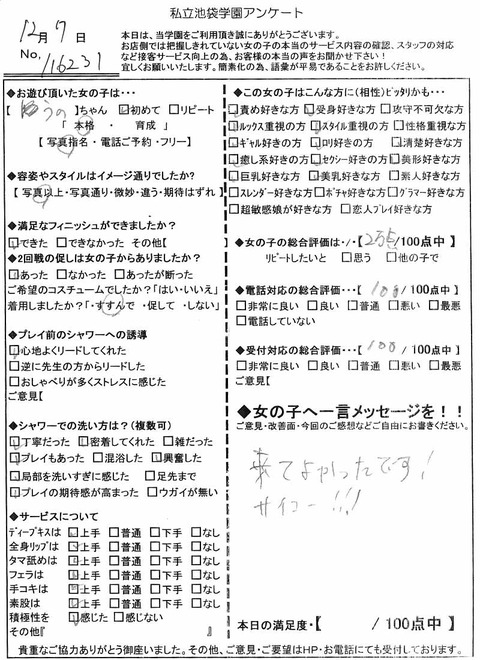 私立池袋学園アンケート
12月7日
No, 116231
本日は、当学園をご利用頂き誠にありがとうございます。
お店側では把握しきれていない女の子の本当のサービス内容の確認、スタッフの対応
など接客サービス向上の為、お客様の本当の声をお聞かせ下さい！
宜しくお願いいたします。簡素化の為、語彙が平易であることをお許しください。
◆お遊び頂いた女の子は･･･
【 ゆうの 】ちゃん □初めて □リピート
「 本格 ・ 育成 」
【 写真指名・電話ご予約・フリー】
◆容姿やスタイルはイメージ通りでしたか?
【 写真以上・写真通り・微妙・違う・期待はずれ 】
◆満足なフィニッシュができましたか?
□できた □できなかった その他【
◆2回戦の促しは女の子からありましたか?
□あった □なかった □あったが断った
ご希望のコスチュームでしたか?「はい・いいえ」
着用しましたか?「・すすんで ・促して ・しない」
◆プレイ前のシャワーへの誘導
□心地よくリードしてくれた
□逆に先生の方からリードした
□おしゃべりが多くストレスに感じた
ご意見【
◆シャワーでの洗い方は?(複数可)
□丁寧だった □密着してくれた □雑だった
□プレイもあった □混浴した □興奮した
□局部を洗いすぎに感じた □足先まで
□プレイの期待感が高まった □ウガイが無い
◆サービスについて
ディープキスは □上手 □普通 □下手 □なし
全身リップは □上手 □普通 □下手 □なし
タマ舐めは □上手 □普通 □下手 □なし
フェラは □上手 □普通 □下手 □なし
手コキは □上手 □普通 □下手 □なし
素股は □上手 □普通 □下手 □なし
積極性を □感じた □感じない
その他『 』
◆この女の子はこんな方に(相性)ピッタリかも･･･
□責め好きな方 □受身好きな方 □攻守不可欠な方
□ルックス重視の方 □スタイル重視の方 □性格重視な方
□ギャル好きの方 □ロリ好きの方 □清楚好きな方
□癒し系好きの方 □セクシー好きの方 □美形好きな方
□巨乳好きな方 □美乳好きな方 □素人好きな方
□スレンダー好きな方 □ポチャ好きな方 □グラマー好きな方
□超敏感娘が好きな方 □恋人プレイ好きな方
◆女の子の総合評価は･/･【 /100点中 】
リピートしたいと □思う □他の子で
◆電話対応の総合評価･･･【 100 /100点中】
□非常に良い □良い □普通 □悪い □最悪
□電話していない
◆受付対応の総合評価･･･【 100 /100点中】
□非常に良い □良い □普通 □悪い □最悪
ご意見【
◆女の子へ一言メッセージを！！
ご意見・改善面・今回のご感想などご自由にお書きください。
来てよかったです！
サイコー!!!
本日の満足度・【 /100点中】
貴重なご協力ありがとう御座いました。その他、ご意見・ご要望はHP・お電話にても受付しております。